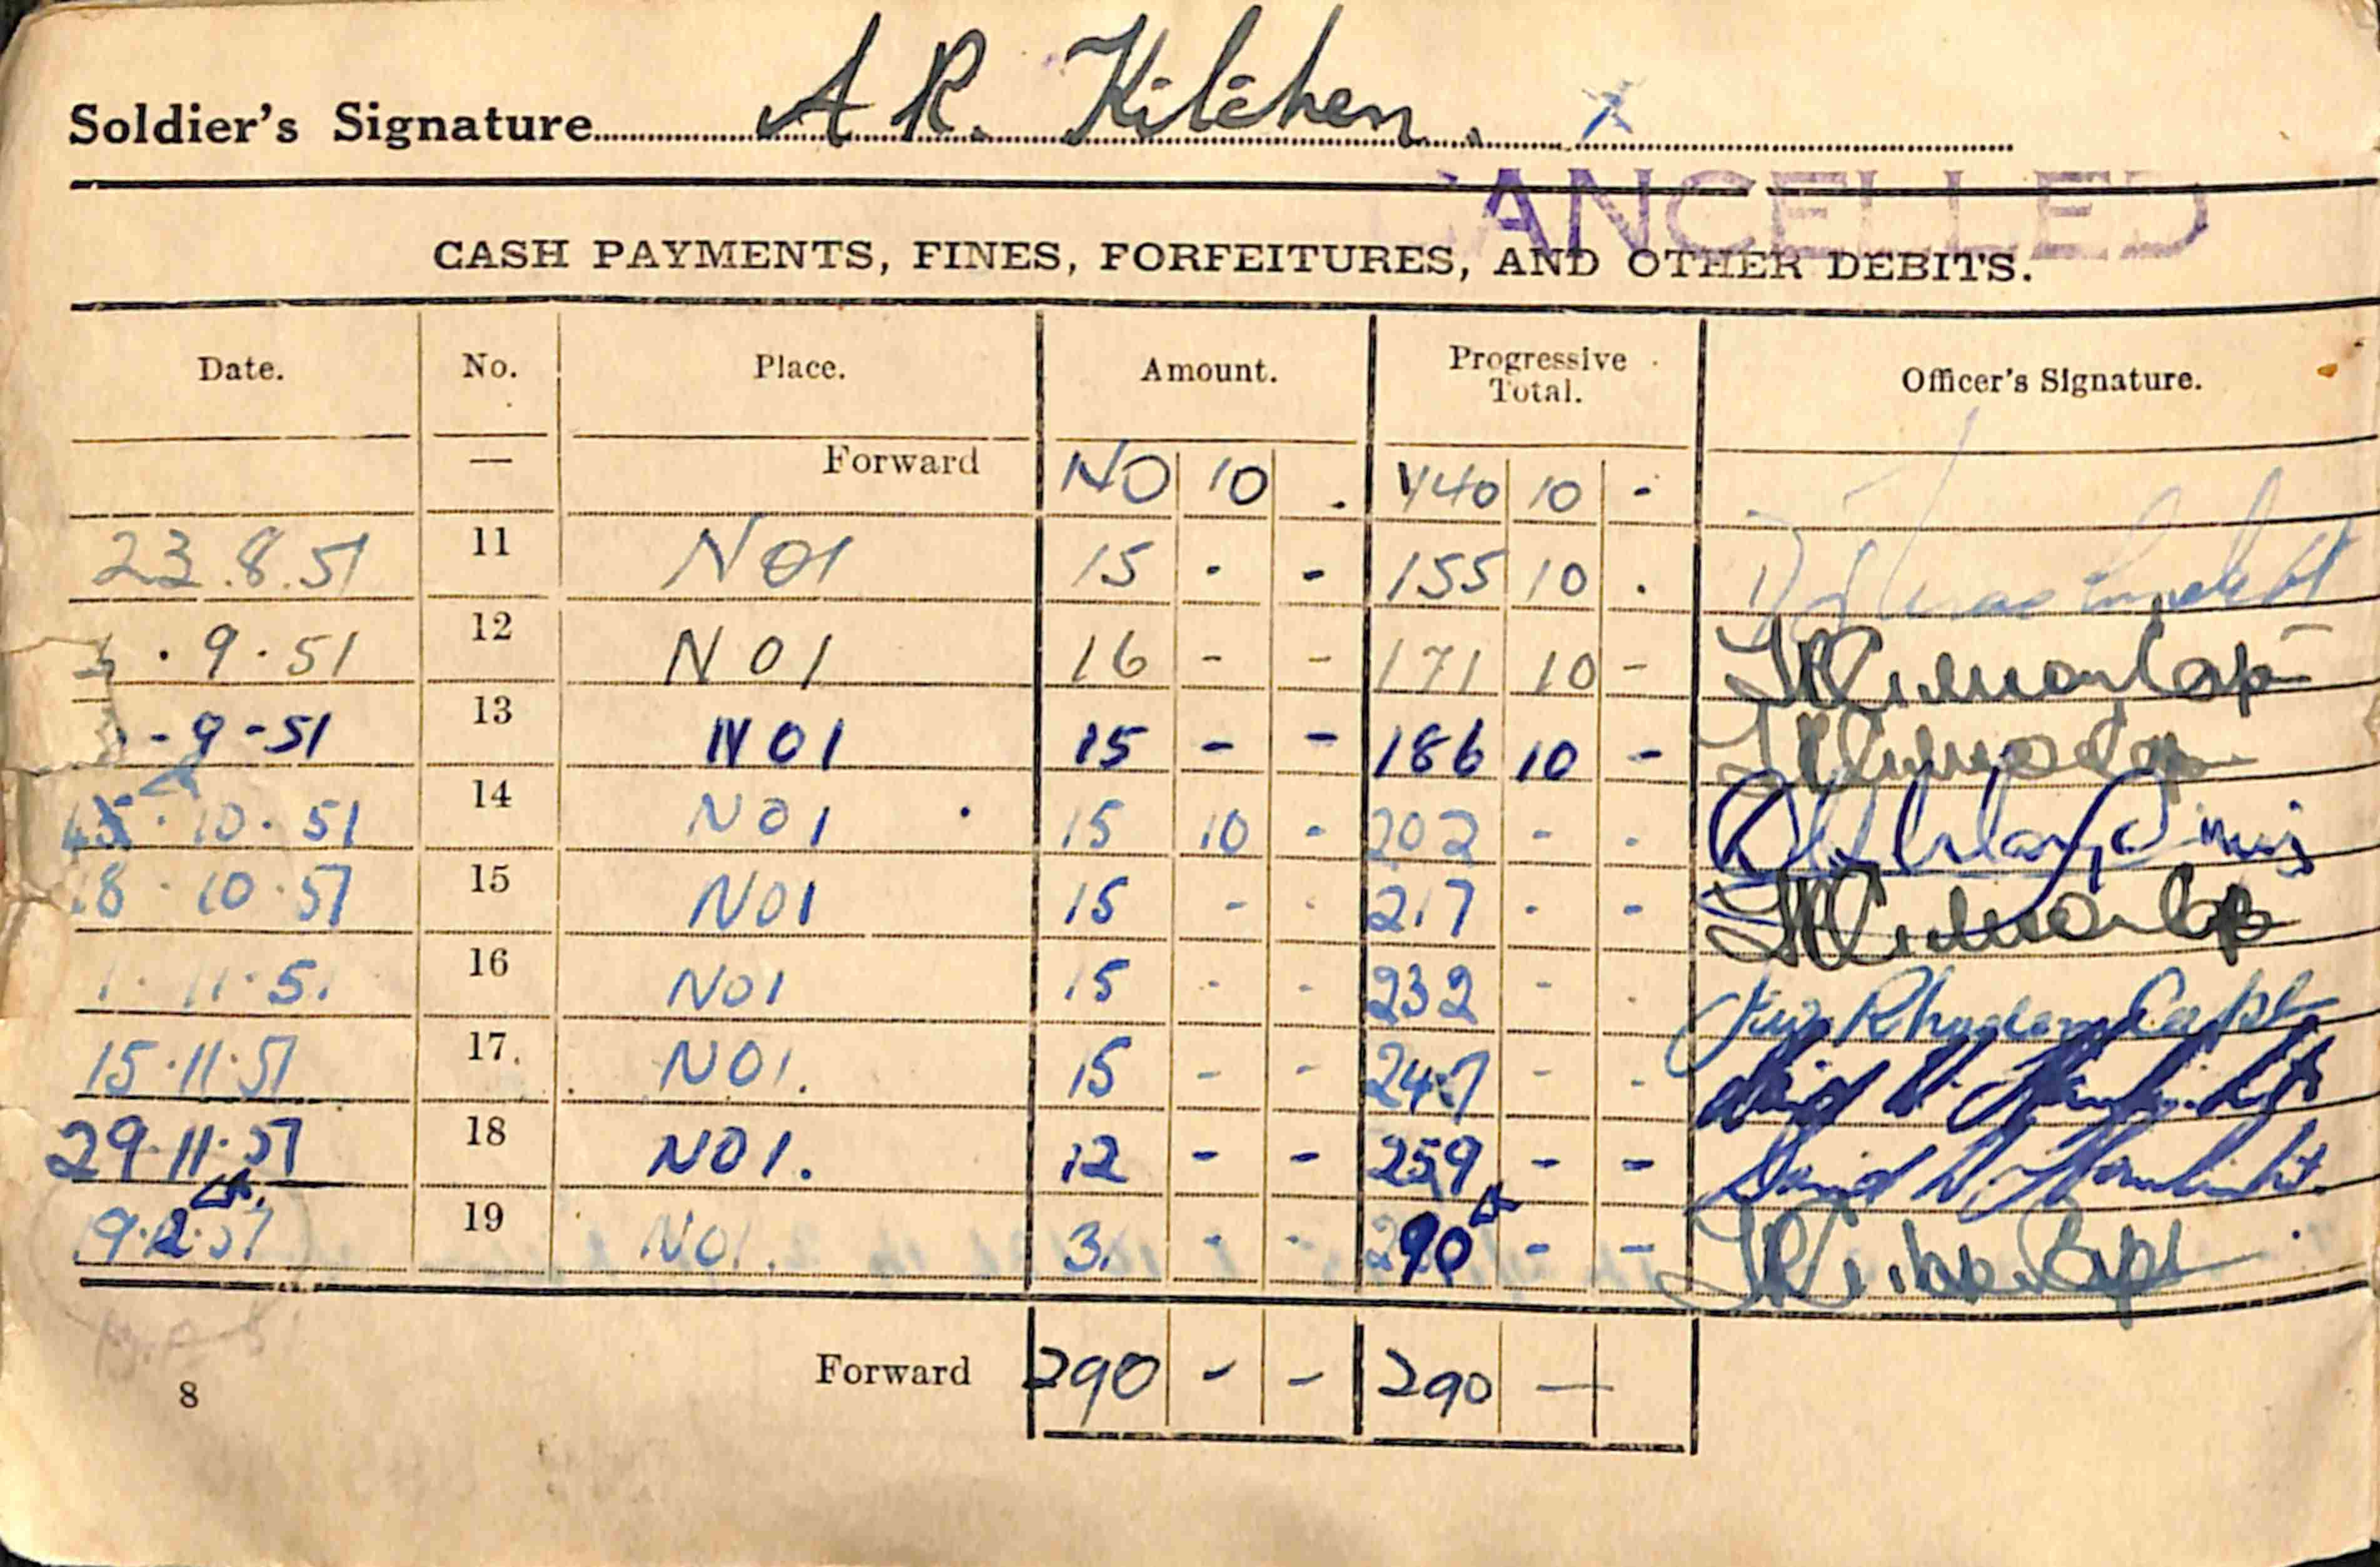 Soldier's Signature A R. Kitchen. X
CANCELLED
CASH PAYMENTS, FINES, FORFEITURES, AND OTHER DEBITS.
Date. No. Place. Amount. Progressive Total. Officer's Signature.
— Forward 140 10 . 140 10 -
23.8.51 11 N01 15 - - 155 10 .
. 9 . 51 12 N01 16 - - 171 10 -
- 9 - 51 13 N01 15 - - 186 10 -
. 10 . 51 14 N01 15 10 - 202 - -
18 . 10 . 51 15 N01 15 - - 217 - -
1 . 11 . 51 16 N01 15 - - 232 - - Capt
15.11.51 17 N01. 15 - - 247 - - David W.
29.11.51 18 N01. 12 - - 259 - - David W.
12.51 19 N01. - - 290 - - Capt
Forward 290 - - 290 —
8